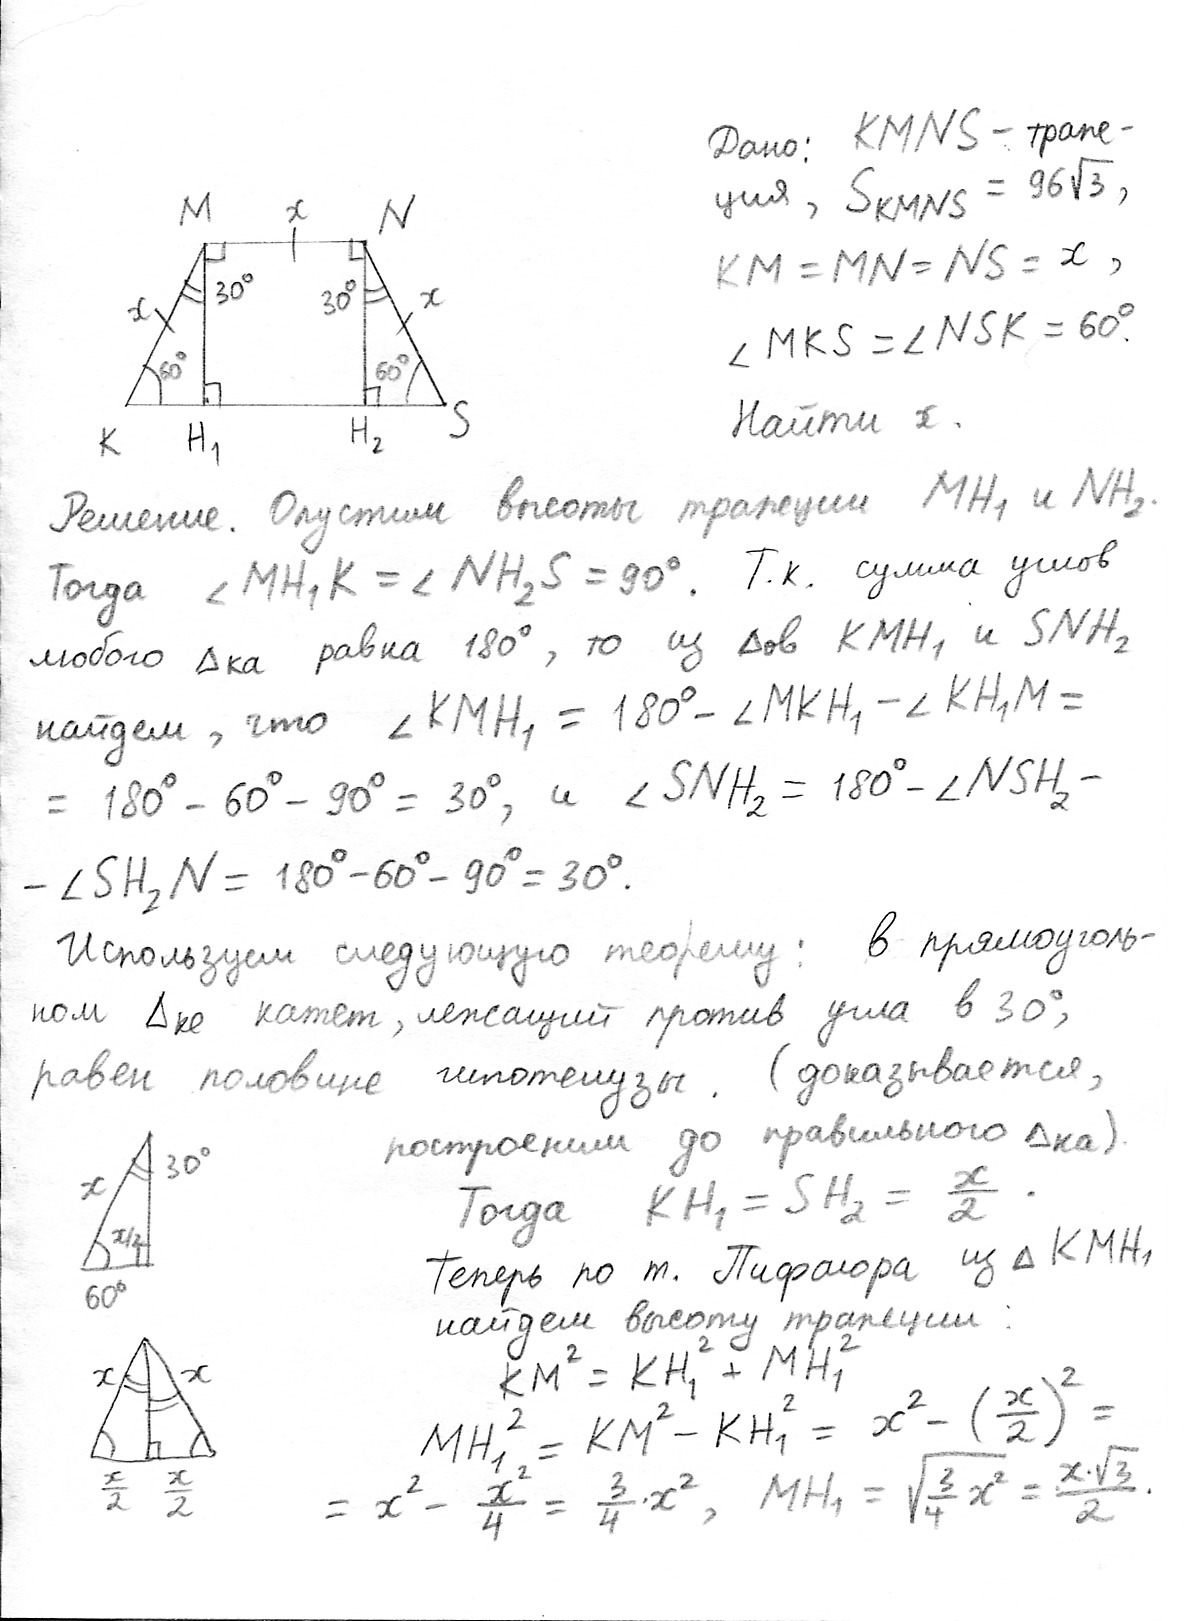 Дано: KMNS - трапе-
ция, S_KMNS = 96√3,
KM = MN = NS = x,
∠MKS = ∠NSK = 60°.
Найти x.
M x N
30° 30°
x x
60° 60°
K H₁ H₂ S
Решение. Опустим высоты трапеции MH₁ и NH₂.
Тогда ∠MH₁K = ∠NH₂S = 90°. Т.к. сумма углов
любого Δка равна 180°, то из Δов KMH₁ и SNH₂
найдем, что ∠KMH₁ = 180° - ∠MKH₁ - ∠KH₁M =
= 180° - 60° - 90° = 30°, и ∠SNH₂ = 180° - ∠NSH₂ -
- ∠SH₂N = 180° - 60° - 90° = 30°.
Используем следующую теорему: в прямоуголь-
ном Δке катет, лежащий против угла в 30°,
равен половине гипотенузы. (доказывается,
построением до правильного Δка).
x 30°
x/2
60°
Тогда KH₁ = SH₂ = x/2.
Теперь по т. Пифагора из Δ KMH₁
найдем высоту трапеции:
x x
x/2 x/2
KM² = KH₁² + MH₁²
MH₁² = KM² - KH₁² = x² - (x/2)² =
= x² - x²/4 = 3/4·x², MH₁ = √(3/4 x²) = x·√3/2.